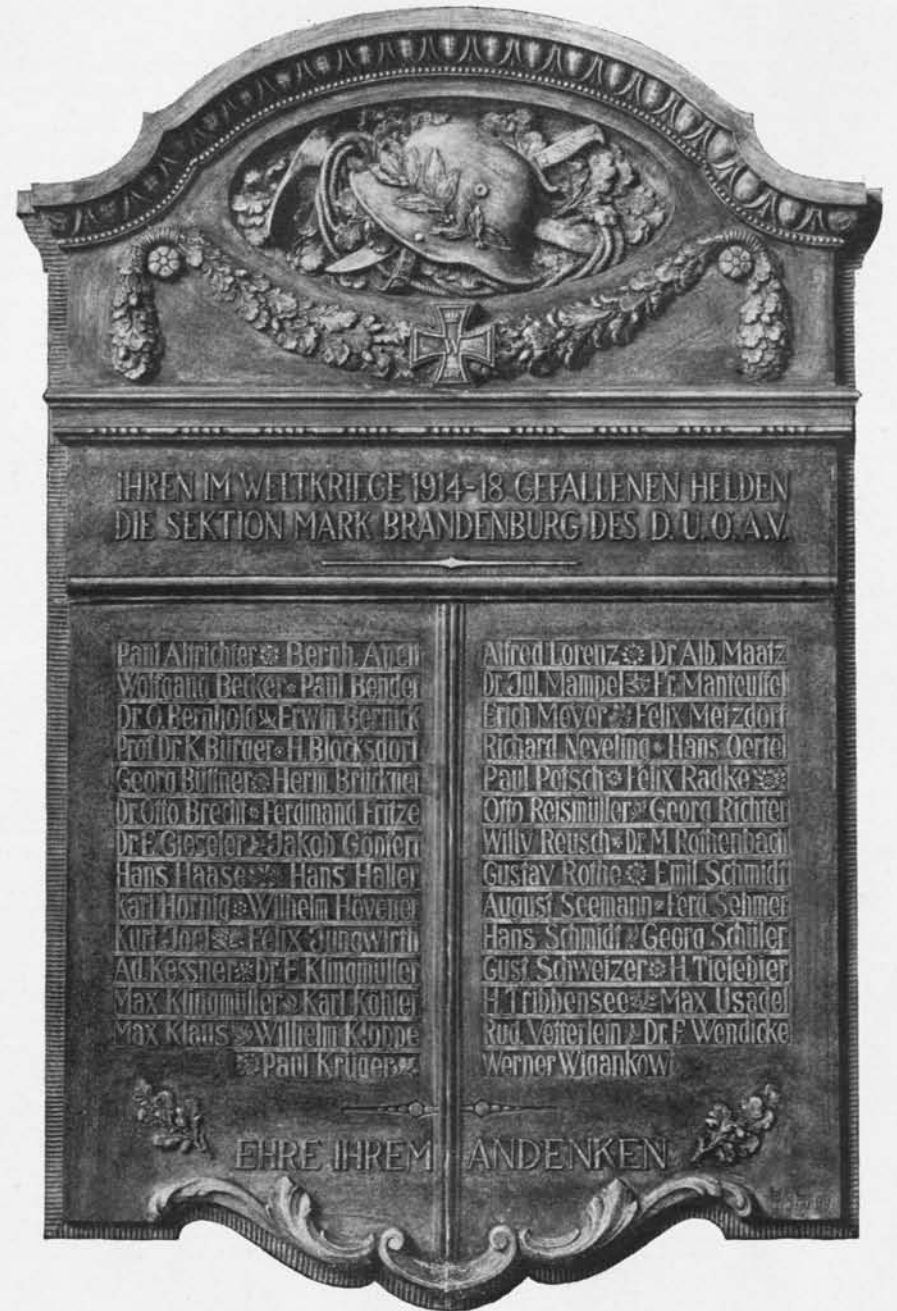 IHREN IM WELTKRIEGE 1914-18 GEFALLENEN HELDEN
DIE SEKTION MARK BRANDENBURG DES D.U.Ö.A.V.
Paul Altrichter Bernh. Apelt
Wolfgang Becker Paul Bender
Dr. O. Bernhold Erwin Bernick
Prof. Dr. K. Bürger H. Blocksdorf
Georg Büttner Herm. Brückner
Dr. Otto Brecht Ferdinand Fritze
Dr. F. Gieseler Jakob Göpfert
Hans Haase Hans Haller
Karl Hornig Wilhelm Hövener
Kurt Joel Felix Jungwirth
Ad. Kessner Dr. F. Klingmüller
Max Klingmüller Karl Köhler
Max Klaus Wilhelm Kloppe
Paul Krüger
Alfred Lorenz Dr. Alb. Maatz
Dr. Jul. Mampel Fr. Manteuffel
Erich Meyer Felix Metzdorf
Richard Neveling Hans Oertel
Paul Potsch Felix Radke
Otto Reismüller Georg Richter
Willy Reusch Dr. M. Rothenbach
Gustav Rothe Emil Schmidt
August Seemann Ferd. Sehmer
Hans Schmidt Georg Schüler
Gust. Schweizer H. Tiefebier
H. Tribbensee Max Usadel
Rud. Vetterlein Dr. F. Wendicke
Werner Wigankow
EHRE IHREM ANDENKEN